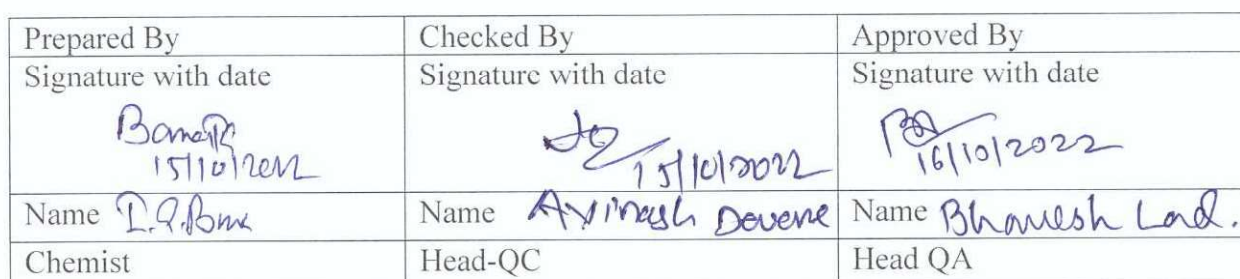 Prepared By Checked By Approved By
Signature with date Signature with date Signature with date
15/10/2022 15/10/2022 16/10/2022
Name Name Avinash Devene Name Bhavesh Lad.
Chemist Head-QC Head QA